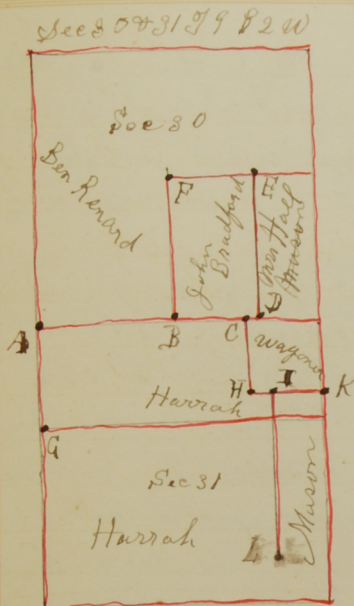 Sec 30 & 31 T9 R2W
Sec 30
Ben Renard
F
E
John
Bradford
Hall
Mason
A
B
C
D
Wagoner
H
I
K
Harrah
G
Sec 31
Harrah
Mason
L